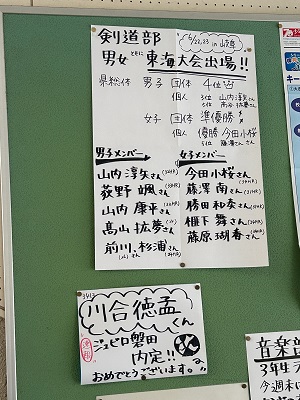 剣道部
6/22,23 in 岐阜
男女ともに東海大会出場!!
県総体 男子 団体 4位
個人 3位 山内淳矢さん
女子 団体 準優勝
個人 優勝 今田小桜さん
5位 藤澤 南さん
男子メンバー
山内淳矢さん
荻野 颯さん
山内 康平さん
髙山 拡夢さん
前川、杉浦さん
女子メンバー
今田小桜さん
藤澤 南さん
勝田和奈さん
榧下 舞さん
藤原 瑚春さん
川合徳孟くん
速報
ジュビロ磐田
内定!!
おめでとうございます。
音楽部
3年生
今週末